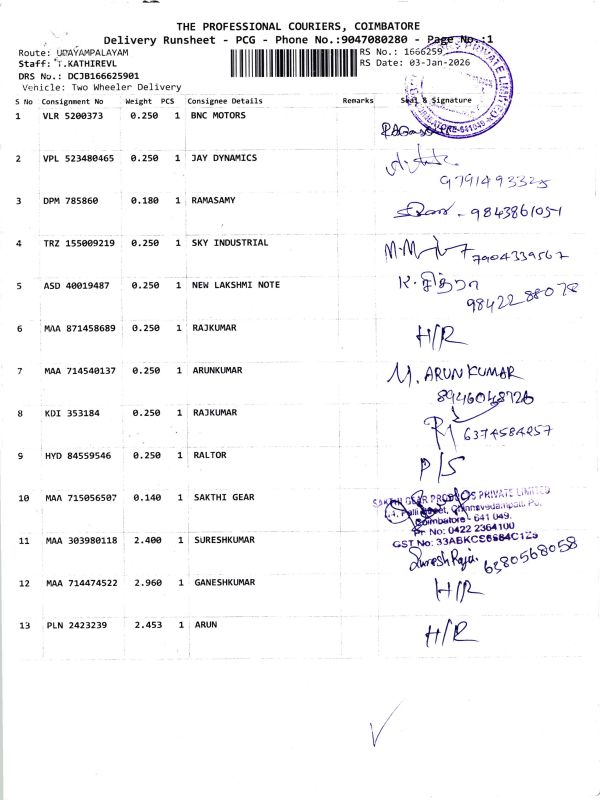 THE PROFESSIONAL COURIERS, COIMBATORE
Delivery Runsheet - PCG - Phone No.:9047080280 - Page No.:1
Route: UDAYAMPALAYAM
RS No.: 1666259
Staff: T.KATHIREVL
RS Date: 03-Jan-2026
DRS No.: DCJB166625901
Vehicle: Two Wheeler Delivery
S No Consignment No Weight PCS Consignee Details Remarks Seal & Signature
1 VLR 5200373 0.250 1 BNC MOTORS
2 VPL 523480465 0.250 1 JAY DYNAMICS
9791493325
3 DPM 785860 0.180 1 RAMASAMY
- 9843861051
4 TRZ 155009219 0.250 1 SKY INDUSTRIAL
7904339567
5 ASD 40019487 0.250 1 NEW LAKSHMI NOTE
K. சித்ரா
98422 88078
6 MAA 871458689 0.250 1 RAJKUMAR
H/R
7 MAA 714540137 0.250 1 ARUNKUMAR
M. ARUN KUMAR
8946048726
8 KDI 353184 0.250 1 RAJKUMAR
6374584257
9 HYD 84559546 0.250 1 RALTOR
P/S
10 MAA 715056507 0.140 1 SAKTHI GEAR
SAKTHI GEAR PRODUCTS PRIVATE LIMITED
Street, Chinnavedampatti, Po,
Coimbatore - 641 049.
Ph No: 0422 2364100
GST No: 33ABKCS6684C1Z9
11 MAA 303980118 2.400 1 SURESHKUMAR
Suresh Raja. 6380568058
12 MAA 714474522 2.960 1 GANESHKUMAR
H/R
13 PLN 2423239 2.453 1 ARUN
H/R